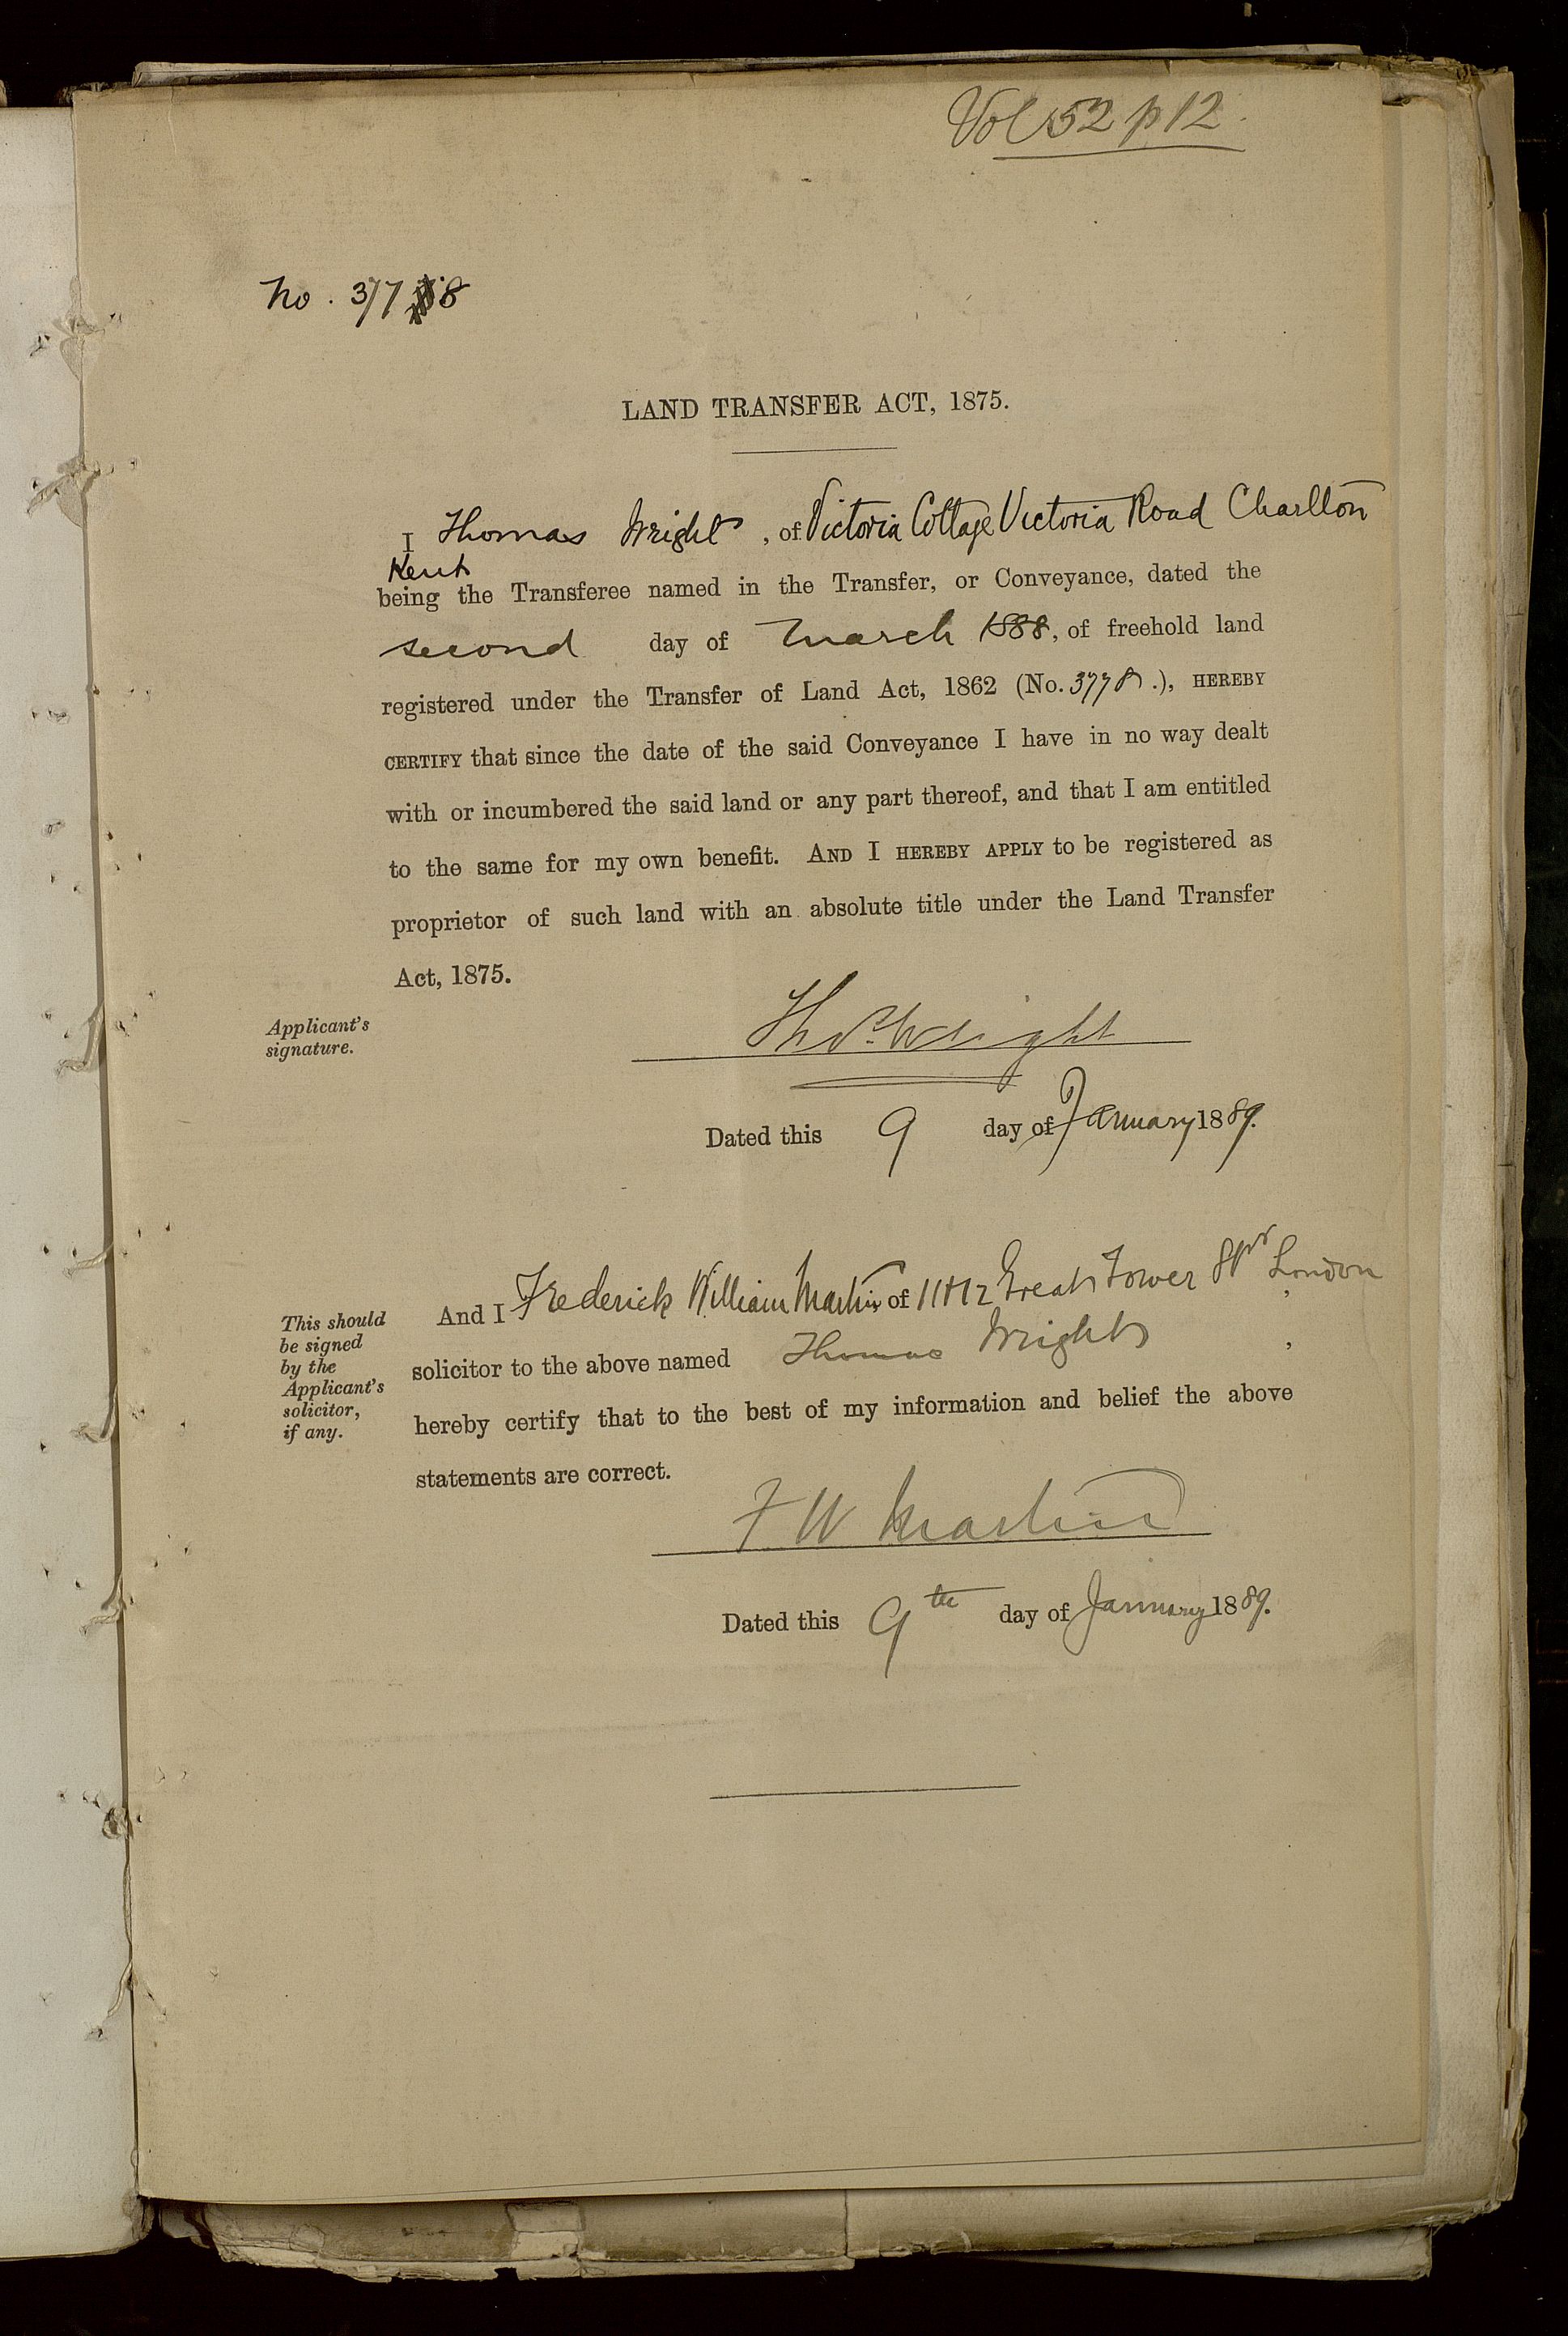 Vol 52 p 12.
No. 3778
LAND TRANSFER ACT, 1875.
I Thomas Wright, of Victoria Cottage Victoria Road Charlton
Kent
being the Transferee named in the Transfer, or Conveyance, dated the
second day of March 1888, of freehold land
registered under the Transfer of Land Act, 1862 (No. 3778.), HEREBY
CERTIFY that since the date of the said Conveyance I have in no way dealt
with or incumbered the said land or any part thereof, and that I am entitled
to the same for my own benefit. AND I HEREBY APPLY to be registered as
proprietor of such land with an absolute title under the Land Transfer
Act, 1875.
Applicant's
signature.
Thos. Wright
Dated this 9 day of January 1889.
This should
be signed
by the
Applicant's
solicitor,
if any.
And I Frederick William Martin of 11 & 12 Great Tower Street London,
solicitor to the above named Thomas Wright,
hereby certify that to the best of my information and belief the above
statements are correct.
F. W Martin
Dated this 9th day of January 1889.